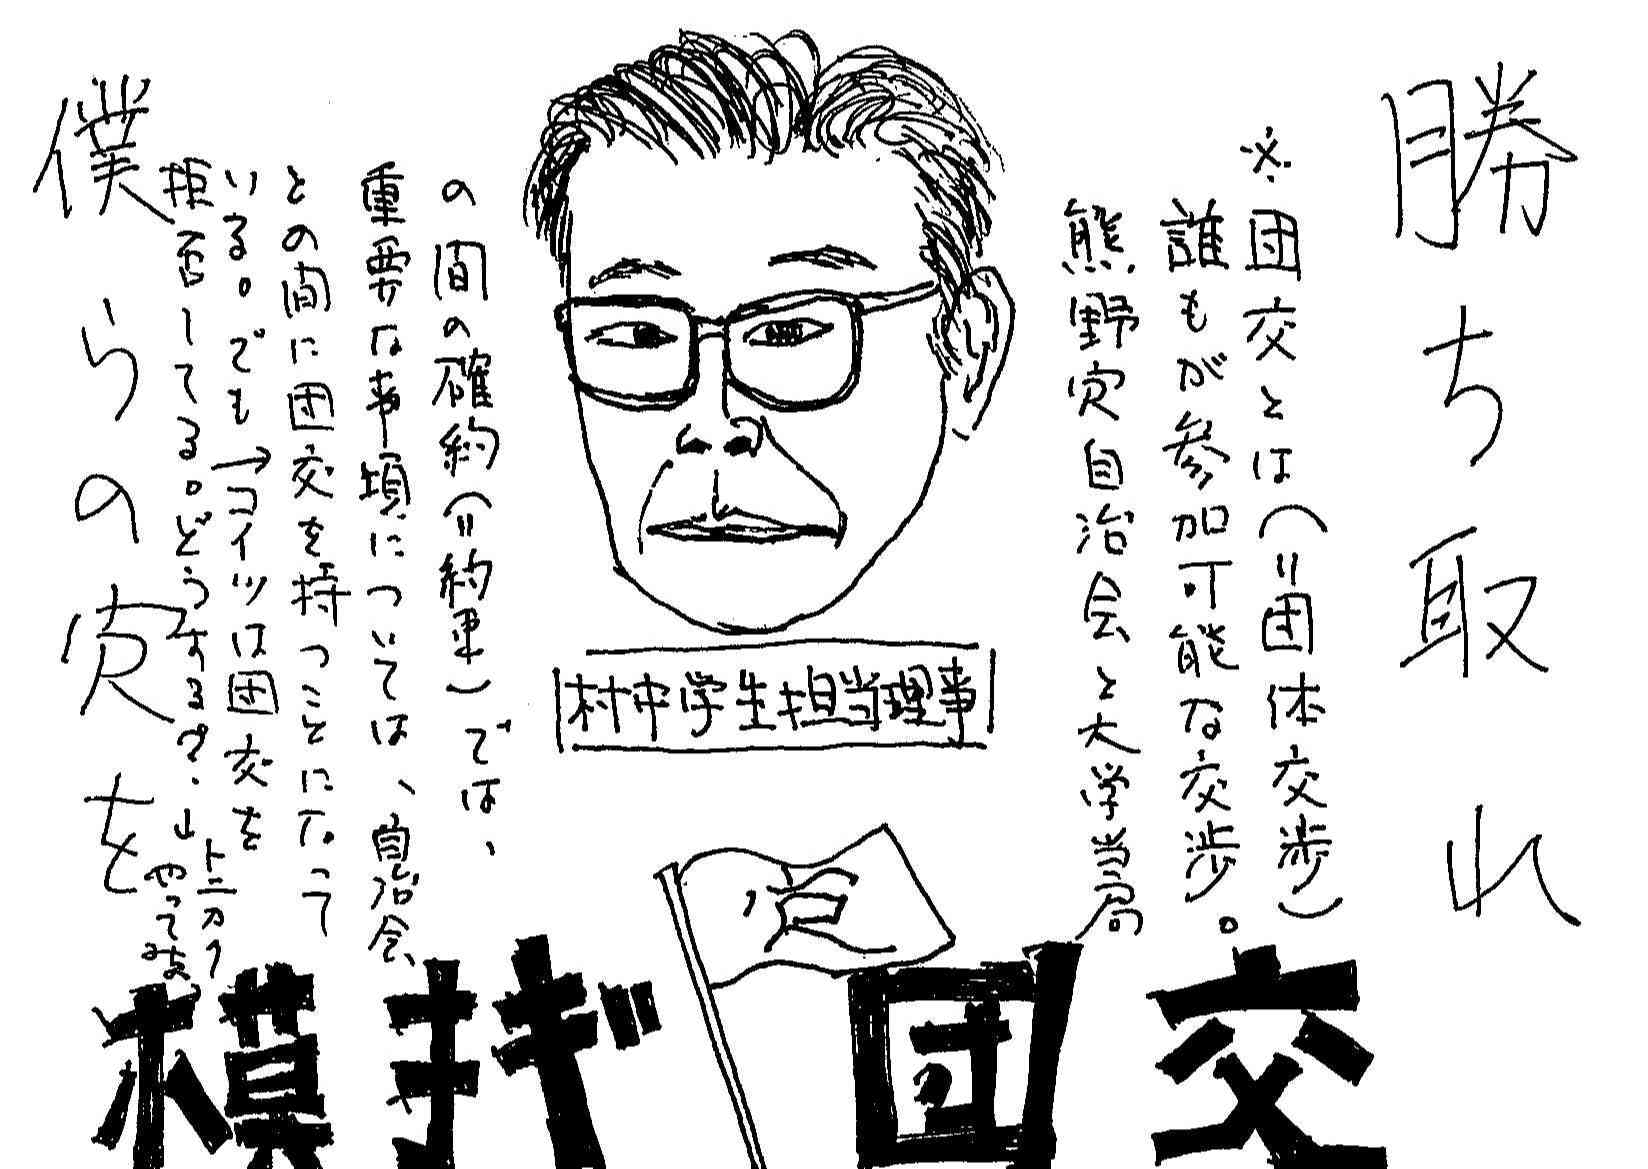 勝ち取れ
※団交とは(=団体交渉)
誰もが参加可能な交渉。
熊野寮自治会と大学当局
の間の確約(=約束)では、
重要な事項については、自治会
との間に団交を持つことになって
いる。でも→コイツは団交を
拒否してる。どうする?→
トニカク
やって
僕らの寮を
村中学生担当理事
模擬団交